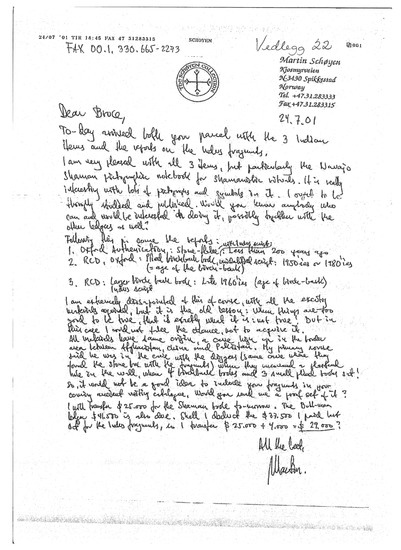 24/07 '01 TIR 14:45 FAX 47 31283315 SCHOYEN 001
FAX 001.330.665-2273
Vedlegg 22
THE SCHØYEN COLLECTION
Martin Schøyen
Kjosmyrveien
N-3430 Spikkestad
Norway
Tel. +47.31.283333
Fax +47.31.283315
24.7.01
Dear Bruce,
To-day arrived both your parcel with the 3 Indian
items and the reports on the Indus fragments.
I am very pleased with all 3 items, but particularly the Navajo
Shaman pictographic notebook for shamanistic rituals. It is really
interesting with lots of pictographs and symbols in it. I ought to be
thoroughly studied and published. Would you know anybody who
can and would be interested in doing it, possibly together with the
other ledgers as well?
Following this p. come the reports:
1. Oxford Authentication: Stone-like with Indus script: Less than 200 years ago
2. RCD, Oxford: Small birchbark book, unidentified script: 1950ies or 1980ies
(= age of the birch-bark)
3. RCD: Larger birch bark book: Late 1960ies (age of birch-bark)
Indus script
I am extremely disappointed of this of course, with all the exciting
materials against, but it is the old lesson: When things are too
good to be true, that is exactly what it is: not true! But in
this case I could not the chance, but to acquire it.
All materials have same origin, a cave high up in the border
area between Afghanistan, China and Pakistan. My primary source
said he was in the cave with the diggers (same cave where they
found the stone box with the fragments) when they uncovered a plastered
hole in the wall, when 4 birchbark books and 2 small books out!
So, it would not be a good idea to include your fragments in your
coming ancient writing catalogue. Would you send me a proof set of it?
I will transfer $25.000 for the Shaman book to-morrow. The
$41.500 is also due. Shall I deduct the $37.500 I paid last
Oct for the Indus fragments, so I transfer $25.000 + 4.000 = $29.000?
All the best,
Martin.